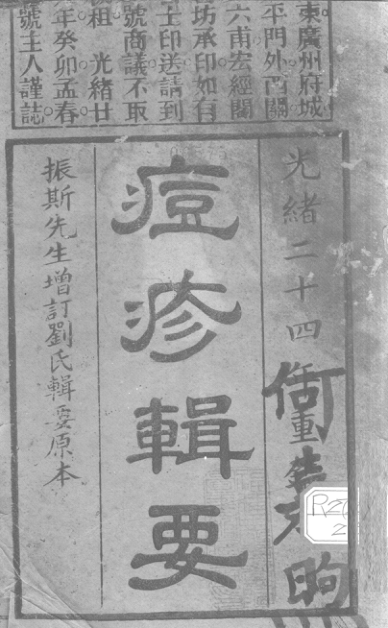 東廣州府城
平門外西關
六甫宏經閣
坊承印如有
士印送請到
號商議不取
租 光緒廿
年癸卯孟春
號主人謹誌
光緒二十四 重
痘疹輯要
振斯先生增訂劉氏輯要原本